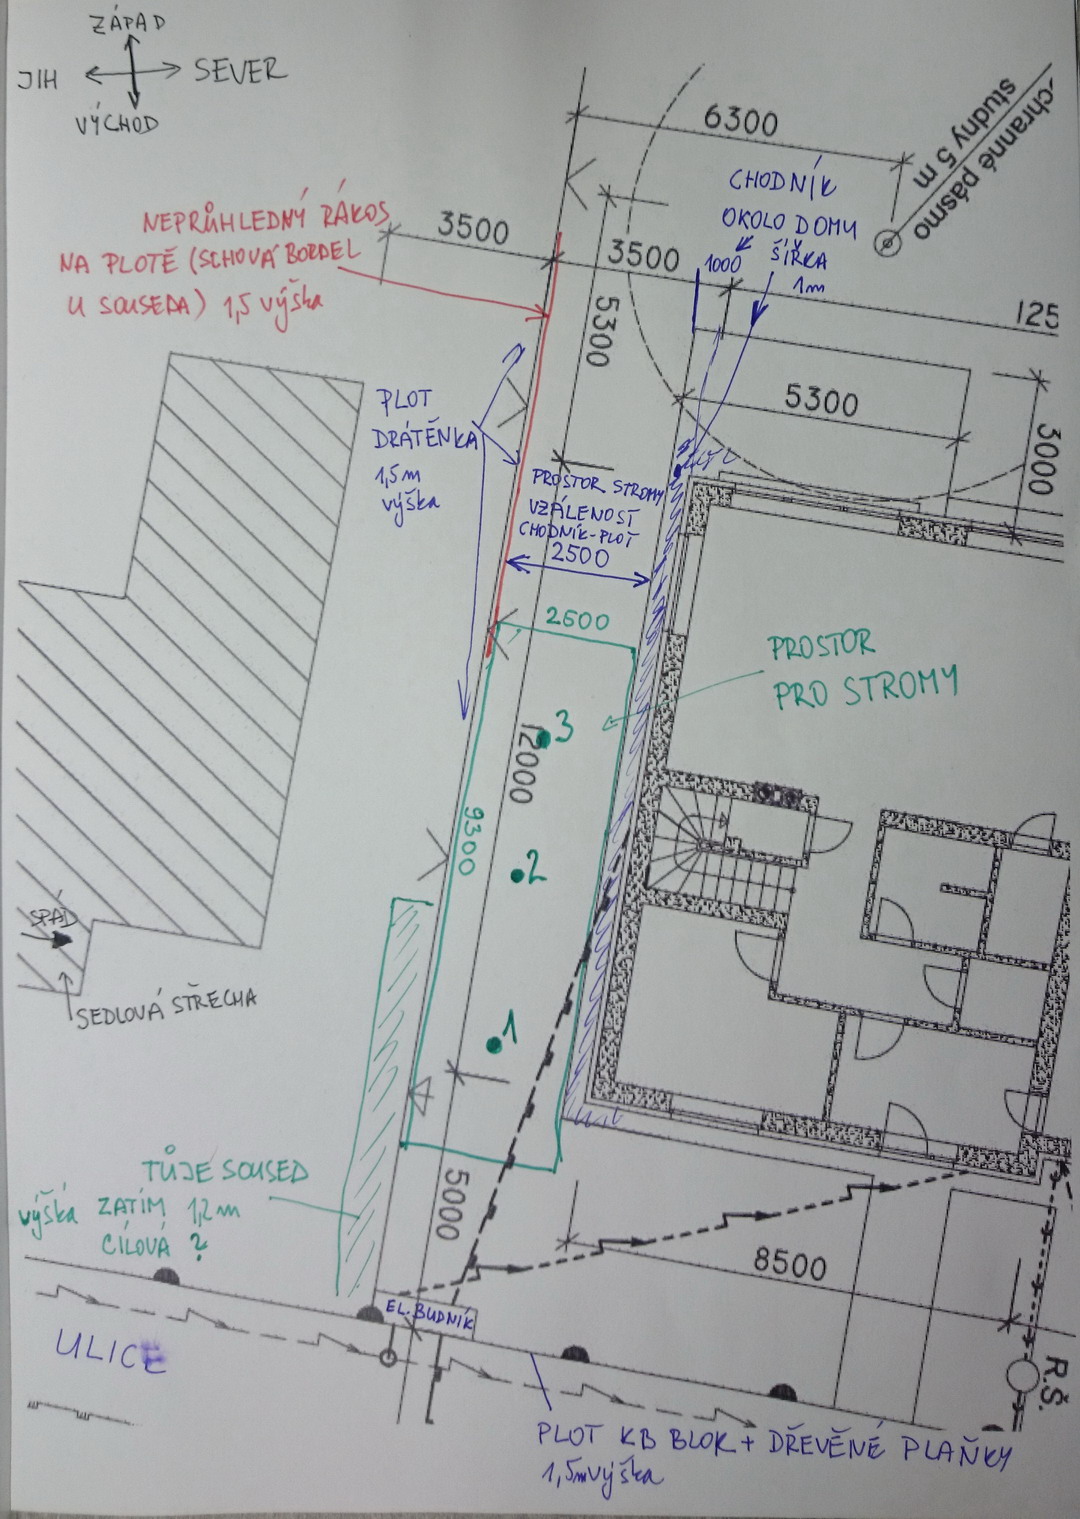 ZÁPAD
JIH
SEVER
VÝCHOD
6300
-chranné pásmo
studny 5 m
CHODNÍK
OKOLO DOMU
ŠÍŘKA
1m
NEPRŮHLEDNÝ RÁKOS
NA PLOTĚ (SCHOVÁ BORDEL
U SOUSEDA) 1,5 výška
3500
3500
1000
125
5300
5300
3000
PLOT
DRÁTĚNKA
1,5m
výška
PROSTOR STROMY
VZÁLENOST
CHODNÍK-PLOT
2500
2600
PROSTOR
PRO STROMY
3
12000
9300
2
1
SPÁD
SEDLOVÁ STŘECHA
TŮJE SOUSED
výška ZATÍM 1,2m
CÍLOVÁ ?
5000
8500
EL. BUDNÍK
ULICE
R.Š.
PLOT KB BLOK + DŘEVĚNÉ PLAŇKY
1,5m výška